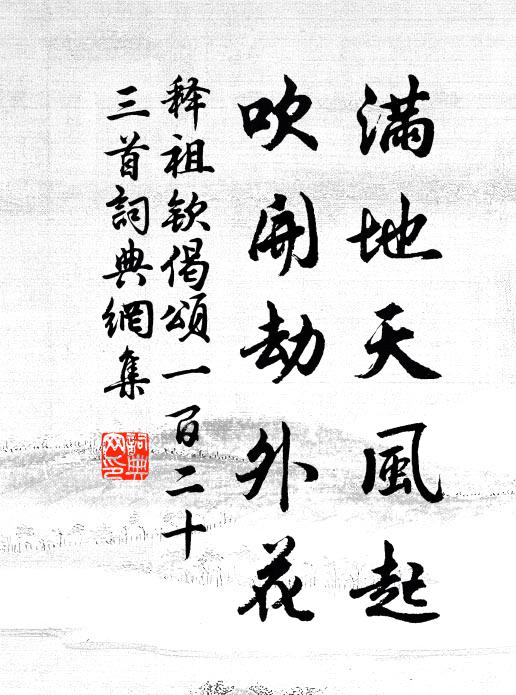 滿地天風起
吹開劫外花
释祖欽偈頌一百二十
三首詞典網集
詞典
网印